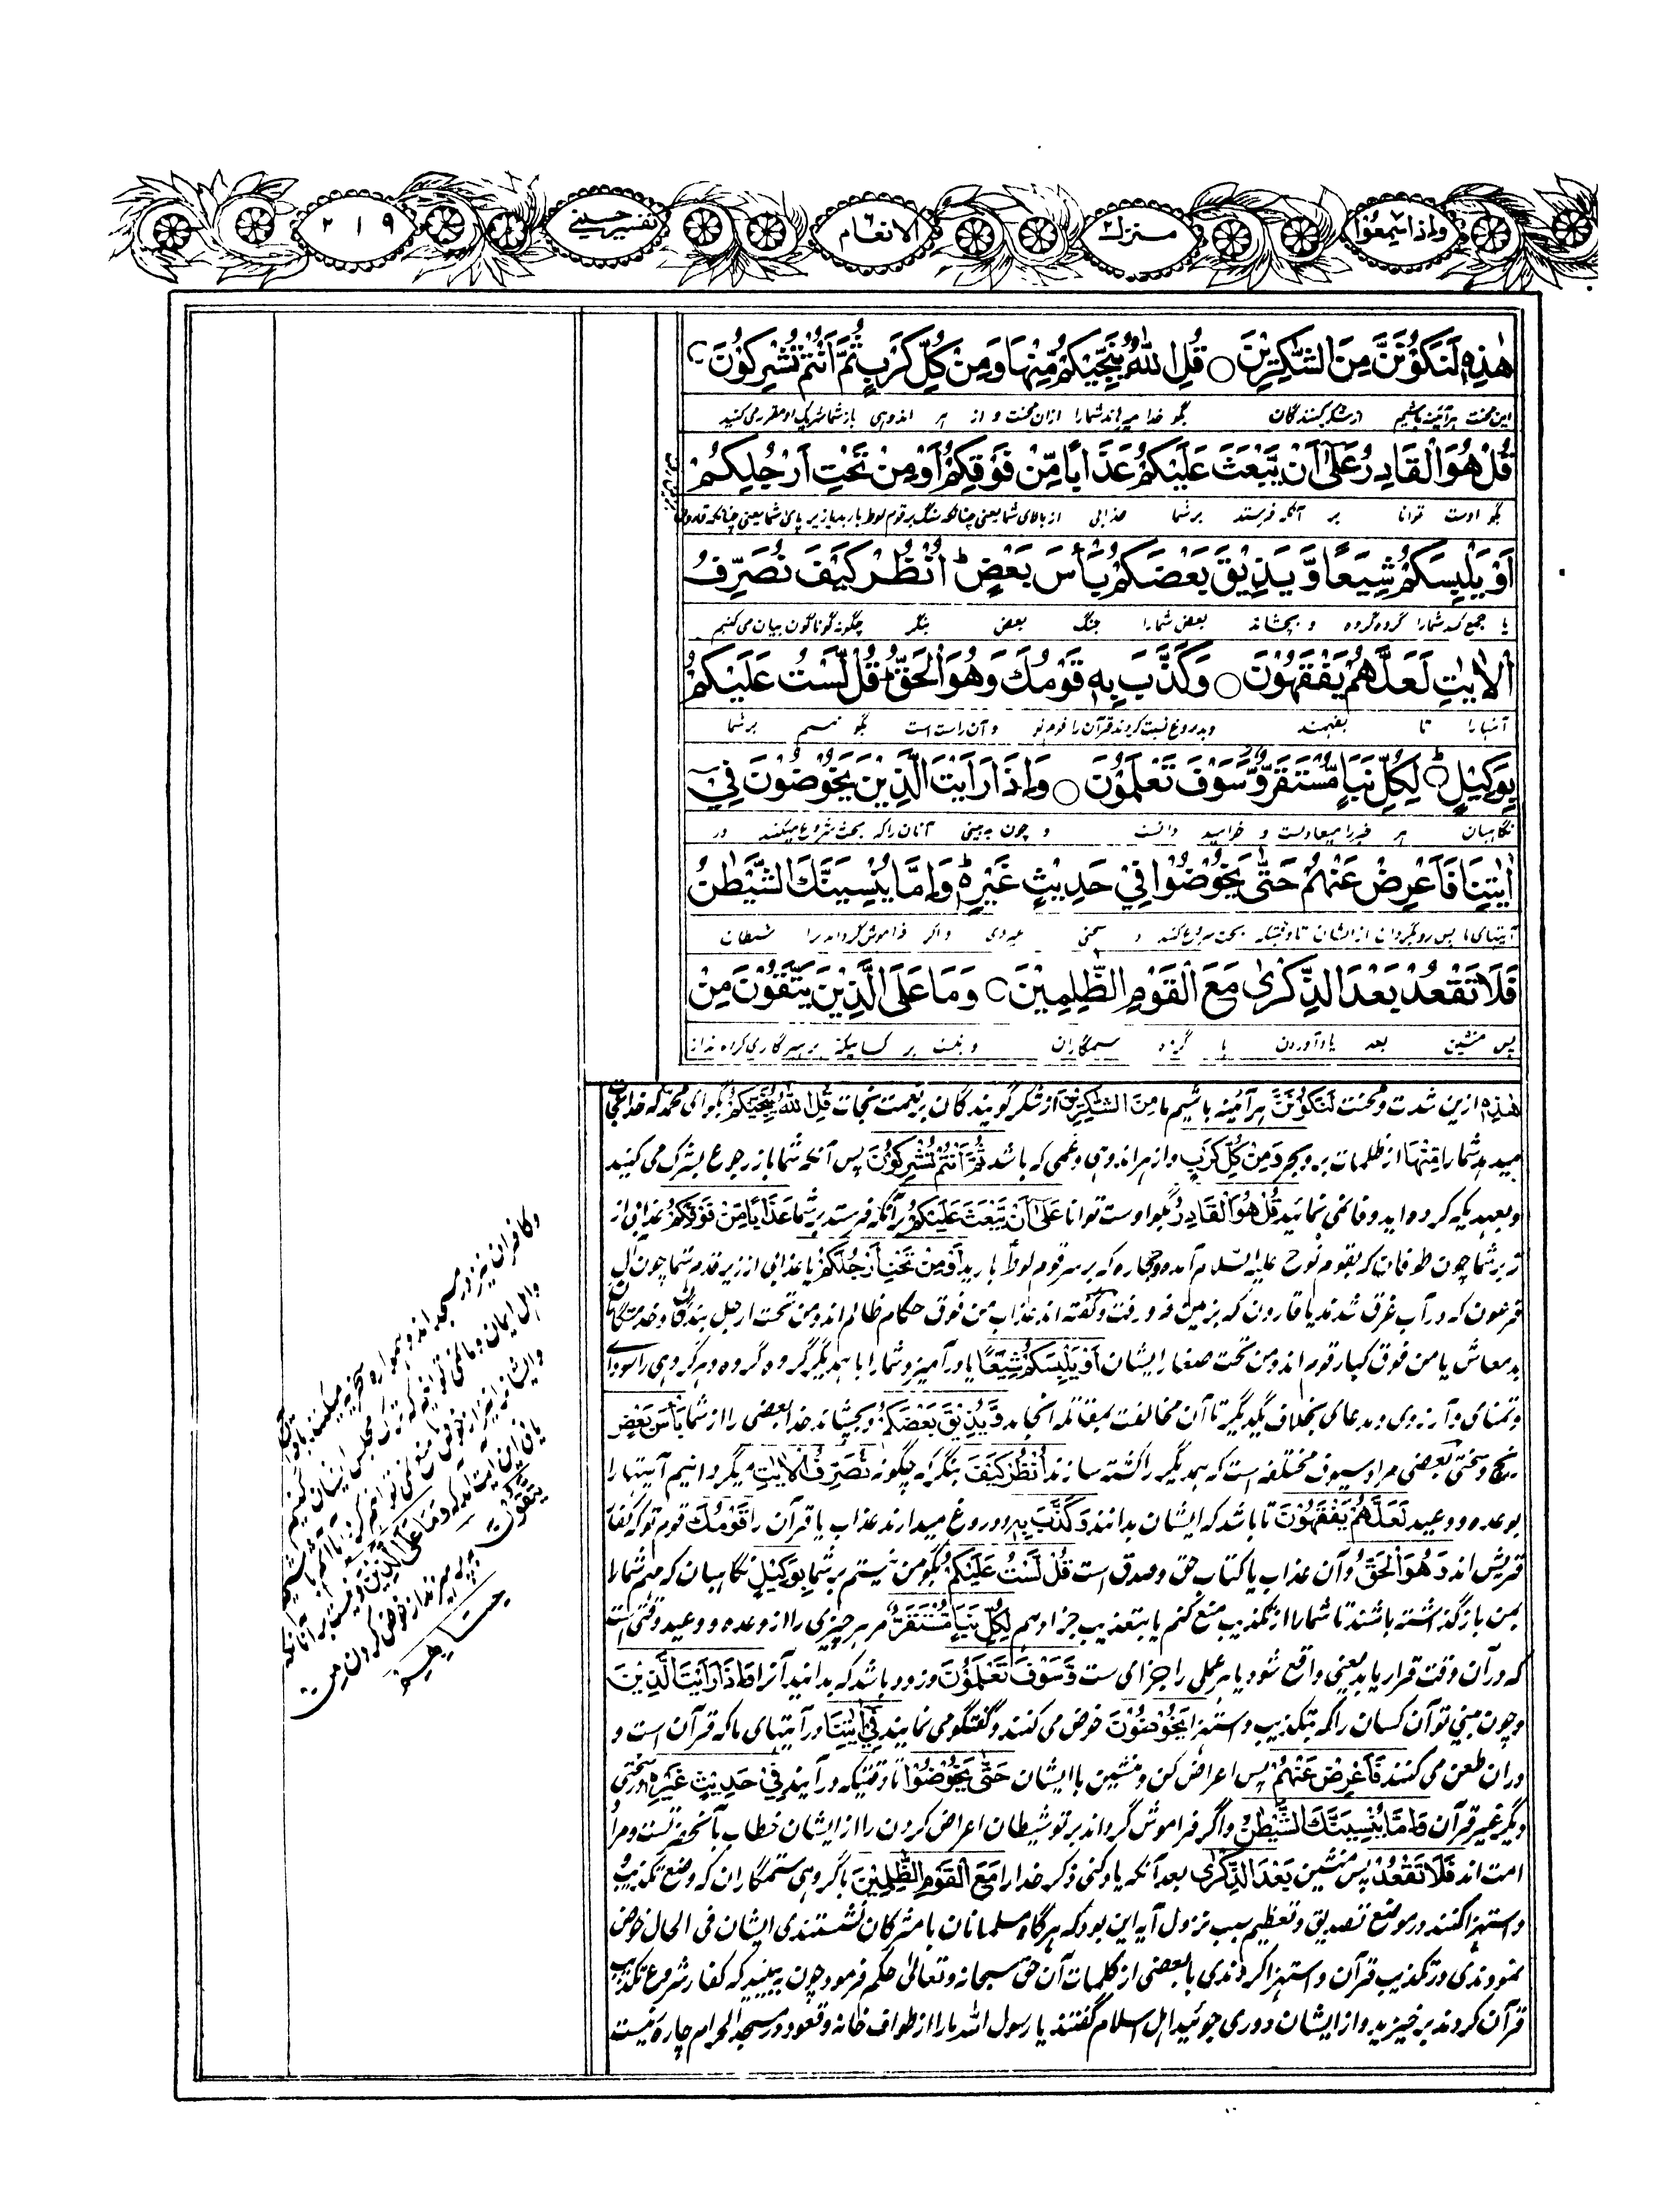 واذا سمعوا ٧
منزل ٢
الانعام ٦
تفسیر حسینی
٢١٩
هٰذِهٖ لَنَكُوْنَنَّ مِنَ الشّٰكِرِيْنَ ○ قُلِ اللّٰهُ يُنَجِّيْكُمْ مِّنْهَا وَمِنْ كُلِّ كَرْبٍ ثُمَّ اَنْتُمْ تُشْرِكُوْنَ ○
این محنت هر آئینه باشیم از شکر کنندگان بگو خدا میرهاند شما را ازان محنت و از هر اندوهی باز شما شریک او مقرر می کنید
قُلْ هُوَ الْقَادِرُ عَلٰٓى اَنْ يَّبْعَثَ عَلَيْكُمْ عَذَابًا مِّنْ فَوْقِكُمْ اَوْ مِنْ تَحْتِ اَرْجُلِكُمْ
بگو اوست توانا بر آنکه فرستد بر شما عذابی از بالای شما یعنی چنانکه سنگ بر قوم لوط بارید یا از زیر پای شما یعنی چنانکه قارون
اَوْ يَلْبِسَكُمْ شِيَعًا وَّيُذِيْقَ بَعْضَكُمْ بَاْسَ بَعْضٍ ؕ اُنْظُرْ كَيْفَ نُصَرِّفُ
یا جمع کند شما را گروه گروه و بچشاند بعض شما را جنگ بعض بنگر چگونه گوناگون بیان می کنیم
الْاٰيٰتِ لَعَلَّهُمْ يَفْقَهُوْنَ ○ وَكَذَّبَ بِهٖ قَوْمُكَ وَهُوَ الْحَقُّ ؕ قُلْ لَّسْتُ عَلَيْكُمْ
آیتها را تا بفهمند و بدروغ نسبت کردند قرآن را قوم تو و آن راست است بگو نیستم بر شما
بِوَكِيْلٍ ؕ لِكُلِّ نَبَاٍ مُّسْتَقَرٌّ وَّسَوْفَ تَعْلَمُوْنَ ○ وَاِذَا رَاَيْتَ الَّذِيْنَ يَخُوْضُوْنَ فِيْٓ
نگاهبان هر خبر را میعادست و خواهید دانست و چون به بینی آنان را که بحث شروع میکنند در
اٰيٰتِنَا فَاَعْرِضْ عَنْهُمْ حَتّٰى يَخُوْضُوْا فِيْ حَدِيْثٍ غَيْرِهٖ ؕ وَاِمَّا يُنْسِيَنَّكَ الشَّيْطٰنُ
آیتهای ما پس رو بگردان از ایشان تا وقتیکه بحث شروع کنند در سخنی غیر وی و اگر فراموش گرداند ترا شیطان
فَلَا تَقْعُدْ بَعْدَ الذِّكْرٰى مَعَ الْقَوْمِ الظّٰلِمِيْنَ ○ وَمَا عَلَى الَّذِيْنَ يَتَّقُوْنَ مِنْ
پس منشین بعد یاد آوردن با گروه ستمگاران و نیست بر کسانیکه پرهیزگاری کرده اند از
هٰذِهٖ ازین شدت و محنت لَنَكُوْنَنَّ هر آئینه باشیم ما مِنَ الشّٰكِرِيْنَ از شکر گویندگان بر نعمت نجات قُلِ اللّٰهُ يُنَجِّيْكُمْ بگو ای محمد که خدا نجات
میدهد شما را مِنْهَا از ظلمات بر و بحر وَمِنْ كُلِّ كَرْبٍ و از هر اندوهی و غمی که باشد ثُمَّ اَنْتُمْ تُشْرِكُوْنَ پس آنگه شما باز رجوع بشرک می کنید
و بعهدیکه کرده اید وفا نمی نمائید قُلْ هُوَ الْقَادِرُ بگو اوست توانا عَلٰٓى اَنْ يَّبْعَثَ عَلَيْكُمْ بر آنکه فرستد بر شما عَذَابًا مِّنْ فَوْقِكُمْ عذابی از
زبر شما چون طوفان که بقوم نوح علیه السلام آمد و حجاره که بر سر قوم لوط بارید اَوْ مِنْ تَحْتِ اَرْجُلِكُمْ یا عذابی از زیر قدم شما چون آل
فرعون که در آب غرق شدند یا قارون که بزمین فرو رفت و گفته اند عذاب من فوق حکام ظالم اند و من تحت ارجل بندگان و خدمتگاران
بد معاش یا من فوق کبار قوم اند و من تحت صغار ایشان اَوْ يَلْبِسَكُمْ شِيَعًا یا در آمیزد شما را با یکدیگر گروه گروه و هر گروهی را سودای
و تمنای و آرزوی و مدعای بخلاف یکدیگر تا آن مخالفت بمقاتله انجامد وَّيُذِيْقَ بَعْضَكُمْ و بچشاند خدا بعضی را از شما بَاْسَ بَعْضٍ
رنج و سختی بعضی مراد سیوف مختلفه است که یکدیگر را کشته سازند اُنْظُرْ كَيْفَ بنگر که چگونه نُصَرِّفُ الْاٰيٰتِ میگردانیم آیتها را
بوعده و وعید لَعَلَّهُمْ يَفْقَهُوْنَ تا باشد که ایشان بدانند وَكَذَّبَ بِهٖ و دروغ میدارند عذاب یا قرآن را قَوْمُكَ قوم تو که کفار
قریش اند وَهُوَ الْحَقُّ و آن عذاب یا کتاب حق و صدق است قُلْ لَّسْتُ عَلَيْكُمْ بگو من نیستم بر شما بِوَكِيْلٍ نگاهبان که مهم شما را
بمن باز گذاشته باشند تا شما را از تکذیب منع کنم یا بتعذیب جزا دهم لِكُلِّ نَبَاٍ مُّسْتَقَرٌّ مر هر چیزی را از وعده و وعید وقتی است
که در آن وقت قرار یابد یعنی واقع شود یا هر عملی را جزای ست وَّسَوْفَ تَعْلَمُوْنَ و زود باشد که بدانید آنرا وَاِذَا رَاَيْتَ الَّذِيْنَ
و چون بینی تو آن کسان را که بتکذیب و استهزا يَخُوْضُوْنَ خوض می کنند و گفتگو می نمایند فِيْٓ اٰيٰتِنَا در آیتهای ما که قرآن است و
دران طعن می کنند فَاَعْرِضْ عَنْهُمْ پس اعراض کن و منشین با ایشان حَتّٰى يَخُوْضُوْا تا وقتیکه در آیند فِيْ حَدِيْثٍ غَيْرِهٖ در سخنی
دیگر غیر قرآن وَاِمَّا يُنْسِيَنَّكَ الشَّيْطٰنُ و اگر فراموش گرداند بر تو شیطان اعراض کردن را از ایشان خطاب بآنحضرتست و مراد
امت اند فَلَا تَقْعُدْ پس منشین بَعْدَ الذِّكْرٰى بعد آنکه یاد کنی ذکر خدا را مَعَ الْقَوْمِ الظّٰلِمِيْنَ با گروهی ستمگاران که وضع تکذیب
و استهزا کنند در موضع تصدیق و تعظیم سبب نزول آیه این بود که هر گاه مسلمانان با مشرکان نشستندی ایشان فی الحال خوض
نمودندی در تکذیب قرآن و استهزا کردندی بابعضی از کلمات آن حق سبحانه و تعالی حکم فرمود چون به بینید که کفار شروع تکذیب
قرآن کردند برخیزید و از ایشان دوری جوئید اهل اسلام گفتند یا رسول الله ما را از طواف خانه و قعود در مسجد الحرام چاره نیست
و کافران نیز در مسجد اند و همواره سخریه میکنند با
و اهل ایمان و ما نمی توانیم که ترک مجلس ایشان کنیم
و ایشان را نیز از خوض منع نمی توانیم کرد
این آیت آمد که وَمَا عَلَى الَّذِيْنَ و نیست بر آنانکه
يَتَّقُوْنَ می پرهیزند از خوض کردن مِنْ
حِسَابِهِمْ